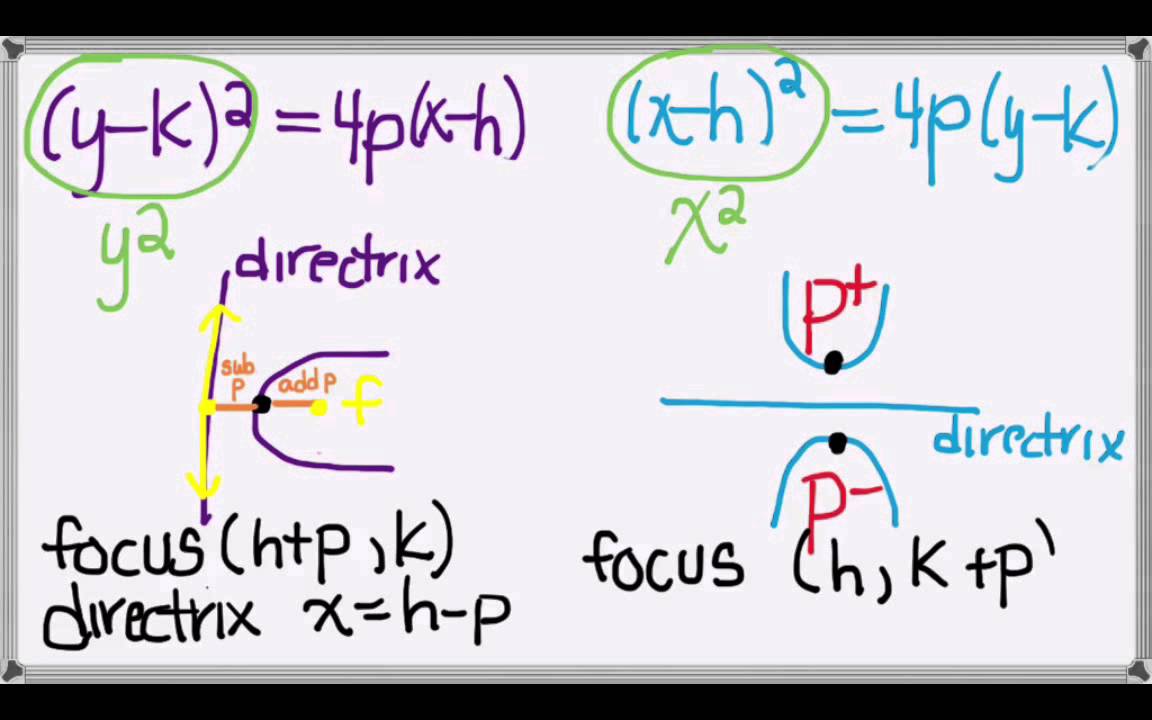 (y-k)² = 4p(x-h)
y²
directrix
sub
p
add p
f
focus (h+p, k)
directrix x = h-p
(x-h)² = 4p(y-k)
x²
p+
directrix
p-
focus (h, k+p)